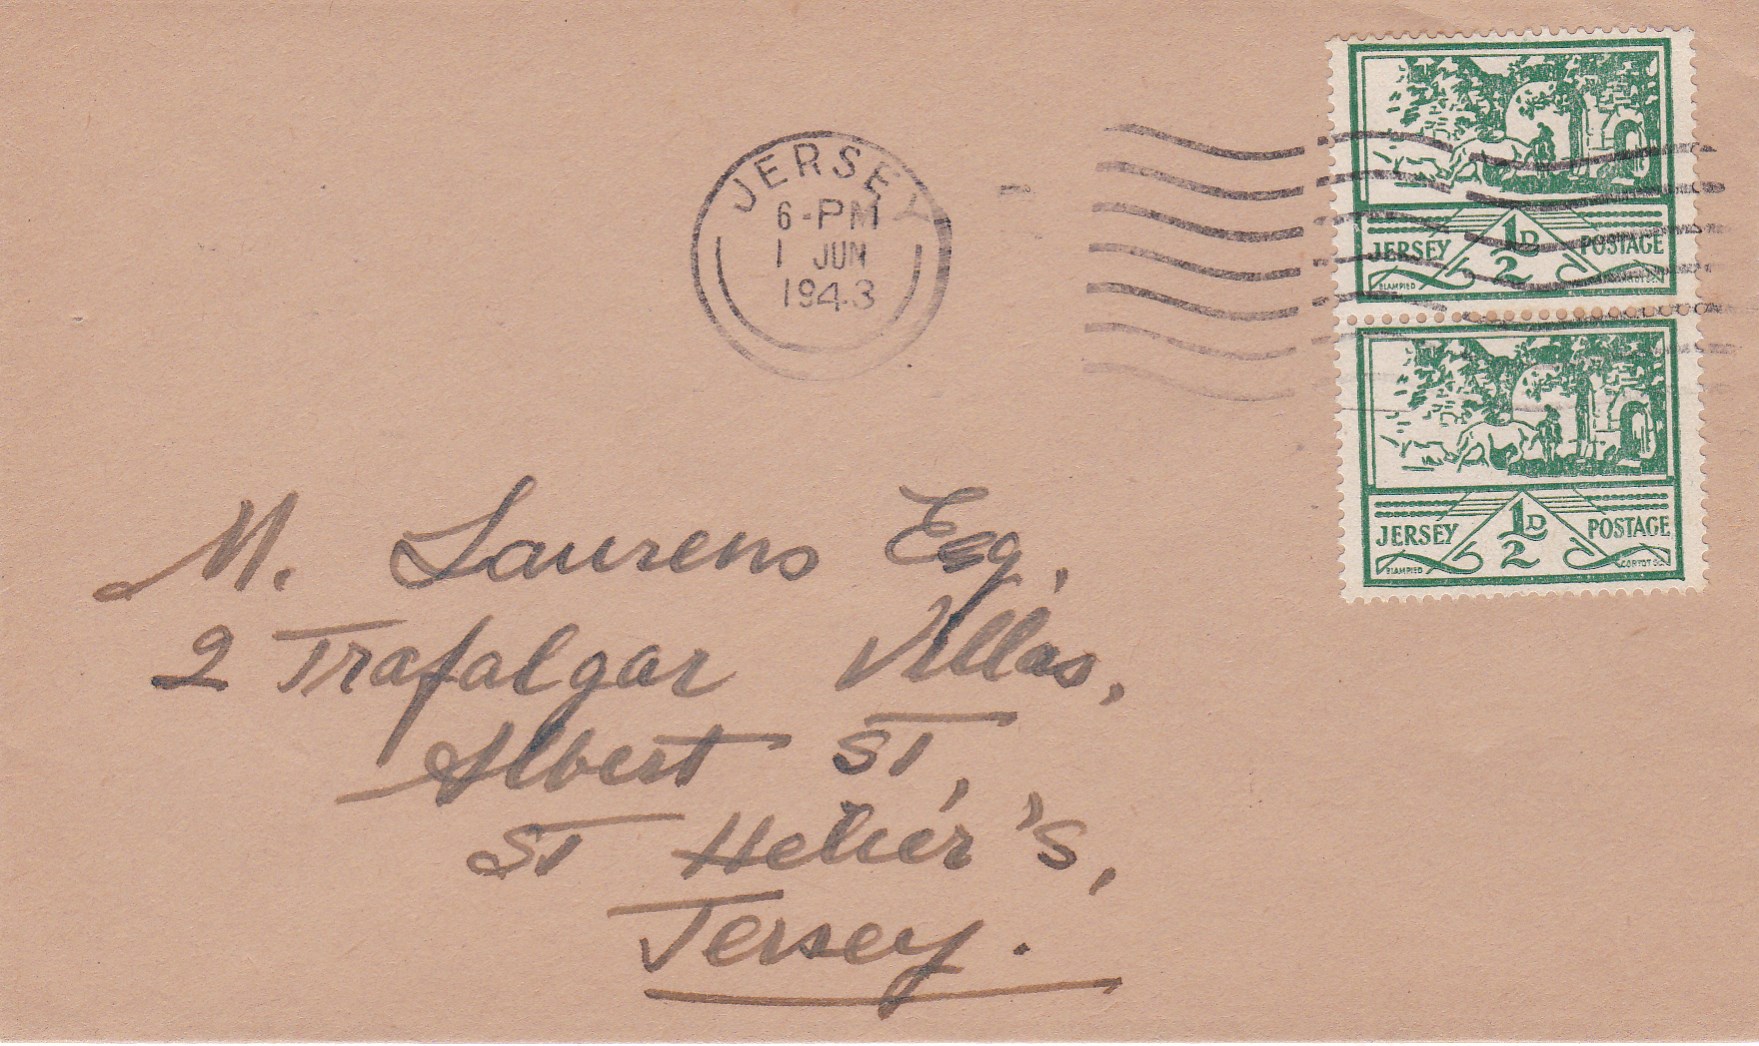 JERSEY
6-PM
1 JUN
1943
JERSEY 1/2D POSTAGE
BLAMPIED
JERSEY 1/2D POSTAGE
BLAMPIED CORTOT DEL
M. Laurens Esq,
2 Trafalgar Villas,
Albert St,
St Helier's,
Jersey.